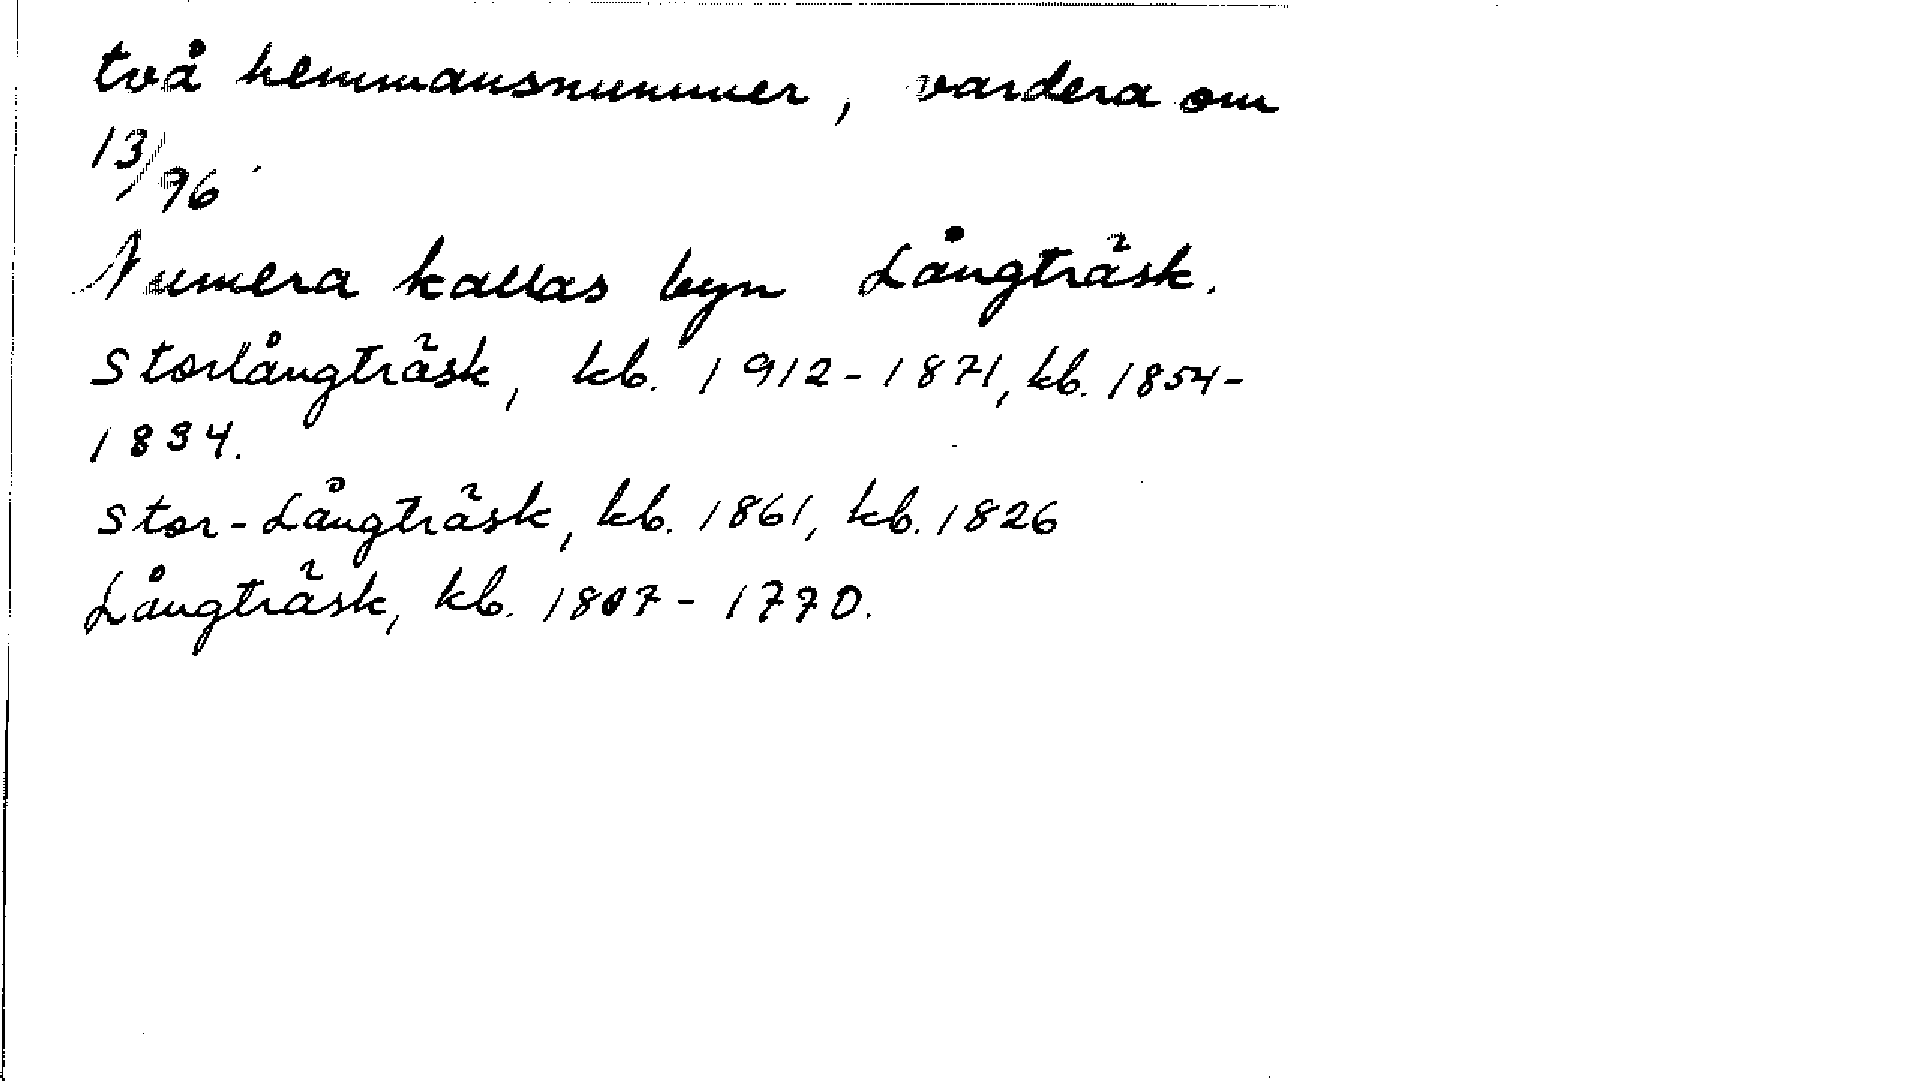 två hemmansnummer, vardera om
13/96
Numera kallas byn Långträsk.
Storlångträsk, kb. 1912-1871, kb. 1854-
1834.
Stor-Långträsk, kb. 1861, kb. 1826
Långträsk, kb. 1807-1770.